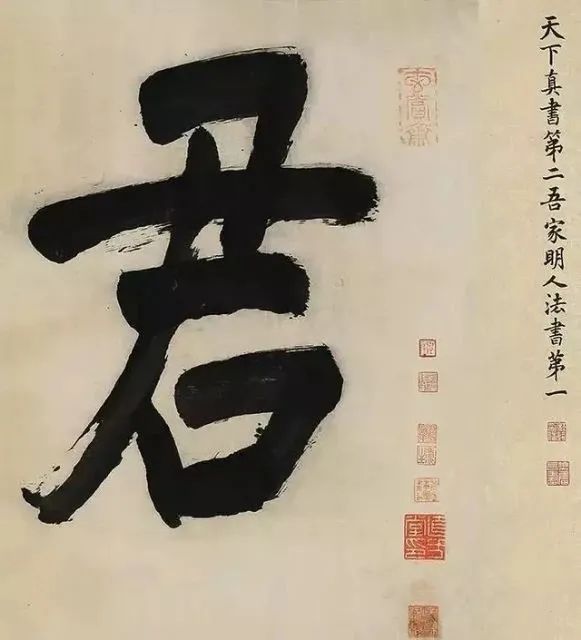 天下真書第二吾家明人法書第一
君